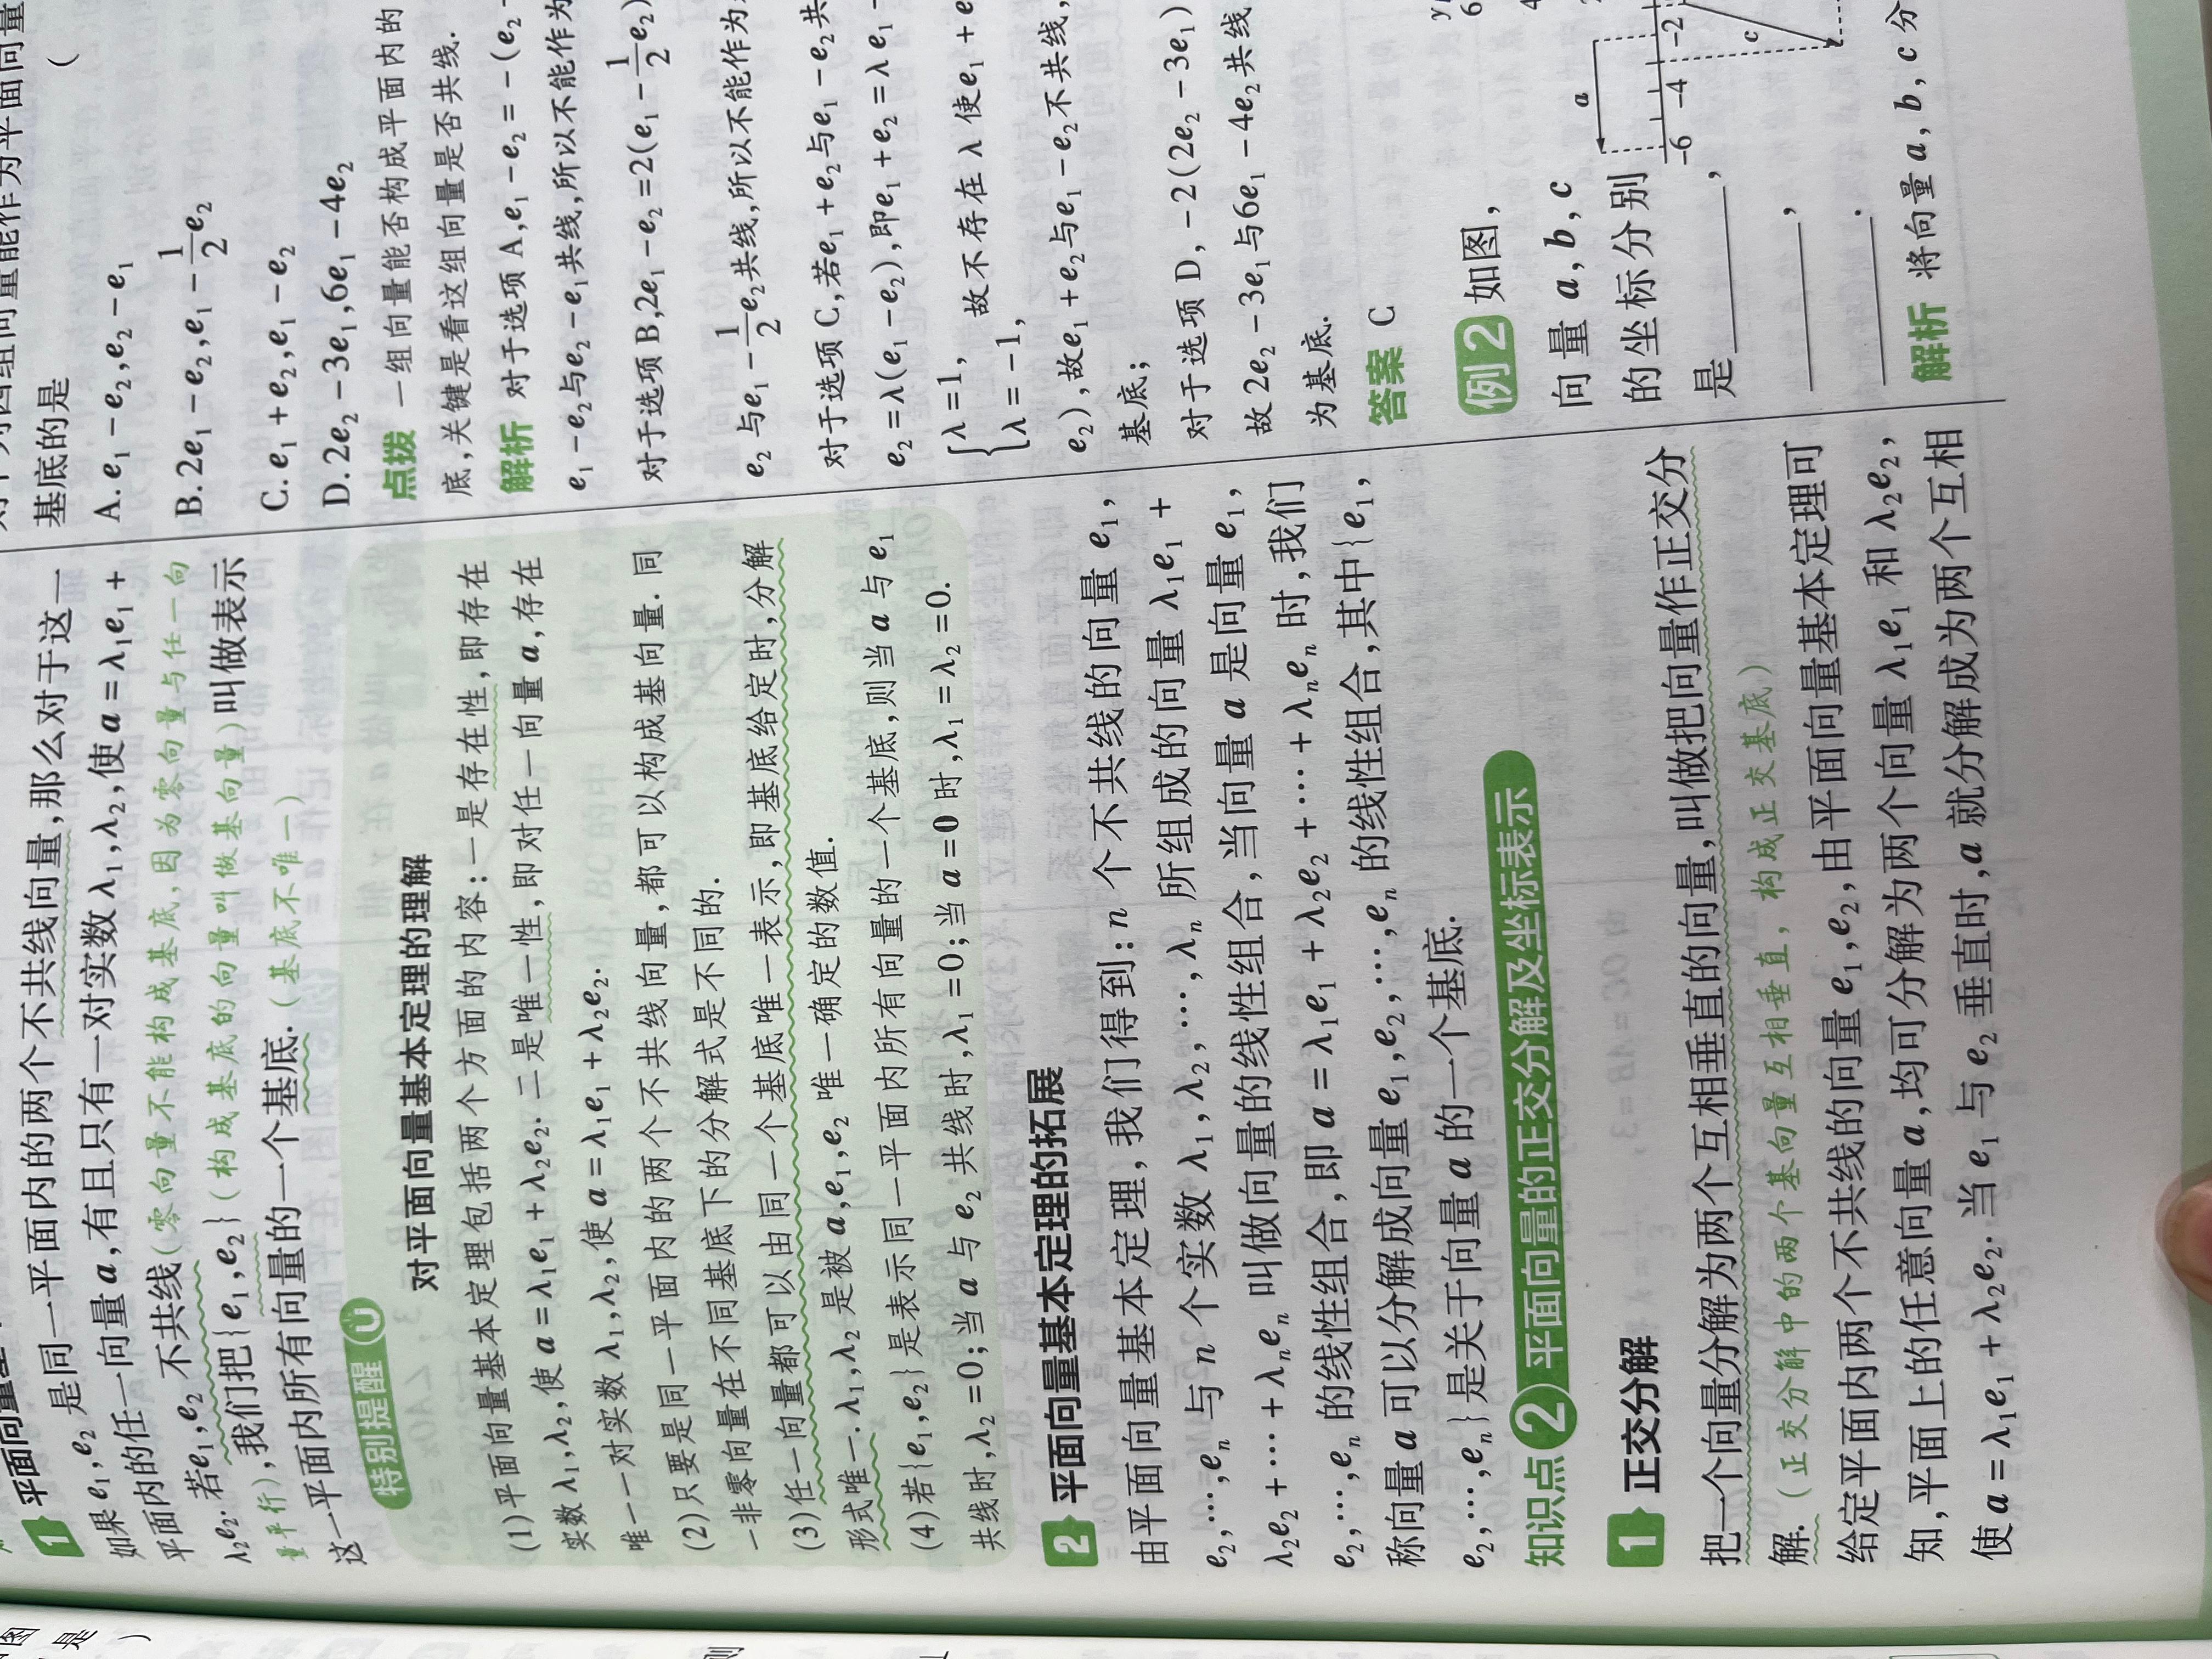 1 平面向量
如果e₁,e₂是同一平面内的两个不共线向量,那么对于这一
平面内的任一向量a,有且只有一对实数λ₁,λ₂,使a=λ₁e₁+
λ₂e₂.若e₁,e₂不共线(零向量不能构成基底,因为零向量与任一向
量平行),我们把{e₁,e₂}(构成基底的向量叫做基向量)叫做表示
这一平面内所有向量的一个基底.(基底不唯一)
特别提醒
对平面向量基本定理的理解
(1)平面向量基本定理包括两个方面的内容:一是存在性,即存在
实数λ₁,λ₂,使a=λ₁e₁+λ₂e₂.二是唯一性,即对任一向量a,存在
唯一一对实数λ₁,λ₂,使a=λ₁e₁+λ₂e₂.
(2)只要是同一平面内的两个不共线向量,都可以构成基向量.同
一非零向量在不同基底下的分解式是不同的.
(3)任一向量都可以由同一个基底唯一表示,即基底给定时,分解
形式唯一.λ₁,λ₂是被a,e₁,e₂唯一确定的数值.
(4)若{e₁,e₂}是表示同一平面内所有向量的一个基底,则当a与e₁
共线时,λ₂=0;当a与e₂共线时,λ₁=0;当a=0时,λ₁=λ₂=0.
2 平面向量基本定理的拓展
由平面向量基本定理,我们得到:n个不共线的向量e₁,
e₂,…,eₙ与n个实数λ₁,λ₂,…,λₙ所组成的向量λ₁e₁+
λ₂e₂+…+λₙeₙ叫做向量的线性组合,当向量a是向量e₁,
e₂,…,eₙ的线性组合,即a=λ₁e₁+λ₂e₂+…+λₙeₙ时,我们
称向量a可以分解成向量e₁,e₂,…,eₙ的线性组合,其中{e₁,
e₂,…,eₙ}是关于向量a的一个基底.
知识点2 平面向量的正交分解及坐标表示
1 正交分解
把一个向量分解为两个互相垂直的向量,叫做把向量作正交分
解.(正交分解中的两个基向量互相垂直,构成正交基底)
给定平面内两个不共线的向量e₁,e₂,由平面向量基本定理可
知,平面上的任意向量a,均可分解为两个向量λ₁e₁和λ₂e₂,
使a=λ₁e₁+λ₂e₂.当e₁与e₂垂直时,a就分解成为两个互相
四组向量能作为平面向量
基底的是 (
A.e₁-e₂,e₂-e₁
B.2e₁-e₂,e₁-1/2e₂
C.e₁+e₂,e₁-e₂
D.2e₂-3e₁,6e₁-4e₂
点拨 一组向量能否构成平面内的
底,关键是看这组向量是否共线.
解析 对于选项A,e₁-e₂=-(e₂-
e₁-e₂与e₂-e₁共线,所以不能作为
对于选项B,2e₁-e₂=2(e₁-1/2e₂)
e₂与e₁-1/2e₂共线,所以不能作为
对于选项C,若e₁+e₂与e₁-e₂共
e₂=λ(e₁-e₂),即e₁+e₂=λe₁-
{λ=1,
λ=-1, 故不存在λ使e₁+e
e₂),故e₁+e₂与e₁-e₂不共线,
基底;
对于选项D,-2(2e₂-3e₁)
故2e₂-3e₁与6e₁-4e₂共线
为基底.
答案 C
例2 如图,
向量a,b,c
的坐标分别
是______,
______,
______.
y
6
a
-6 -4 -2
c
解析 将向量a,b,c分